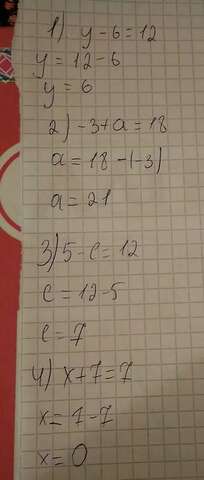 1) y-6=12
y=12-6
y=6
2) -3+a=18
a=18-(-3)
a=21
3) 5-c=12
c=12-5
c=7
4) x+7=7
x=7-7
x=0